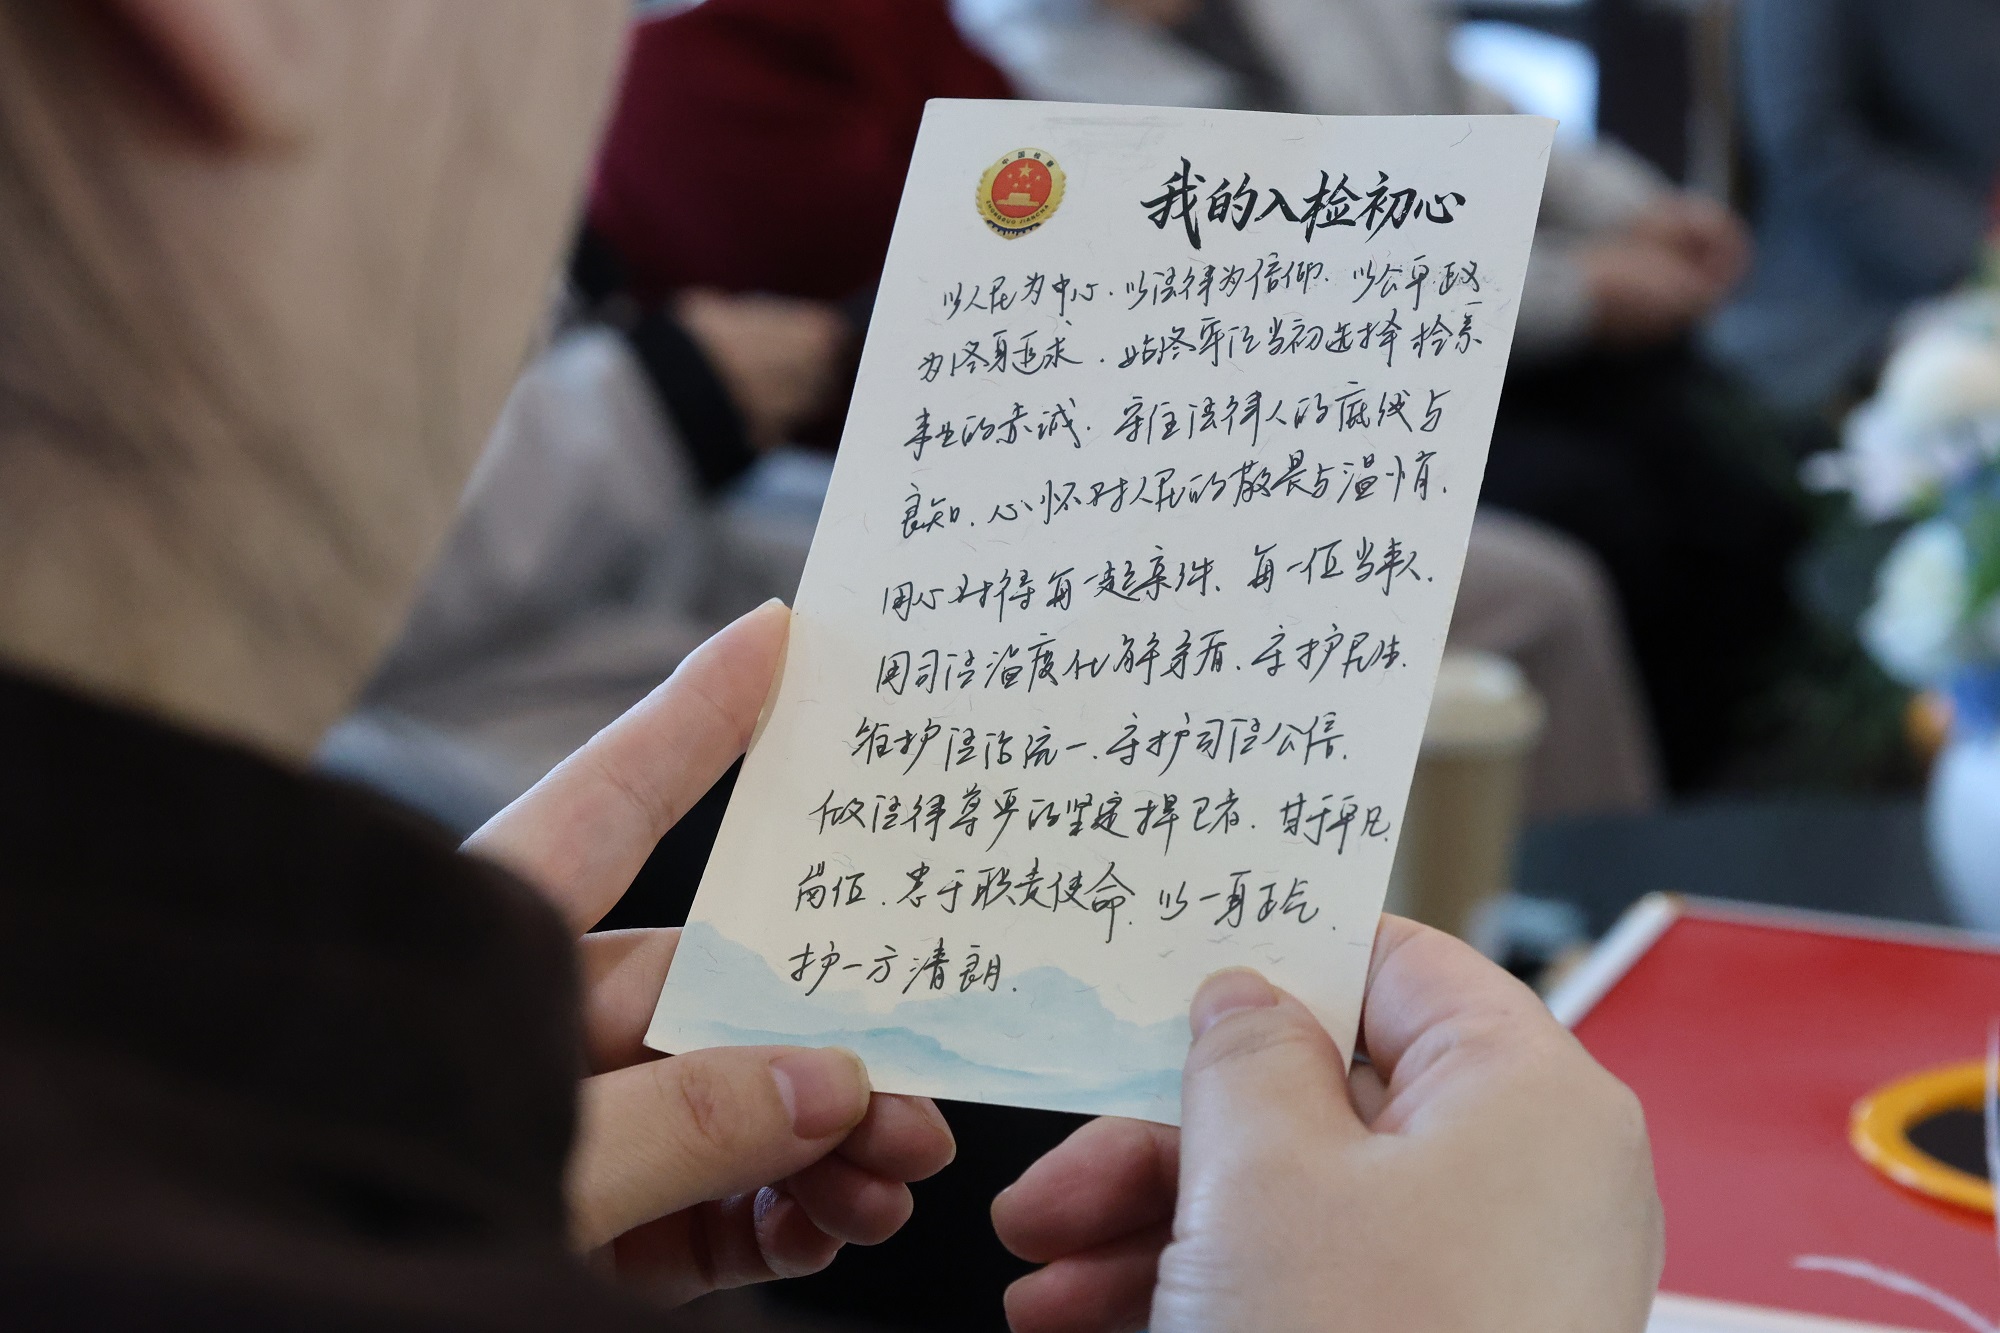 中国检察
ZHONGGUO JIANCHA
我的入检初心
以人民为中心、以法律为信仰、以公平正义
为终身追求、始终牢记当初选择检察
事业的赤诚、守住法律人的底线与
良知、心怀对人民的敬畏与温情、
用心对待每一起案件、每一位当事人、
用司法温度化解矛盾、守护民生、
维护法治统一、守护司法公信、
做法律尊严的坚定捍卫者、甘于平凡
岗位、忠于职责使命、以一身正气、
护一方清朗.